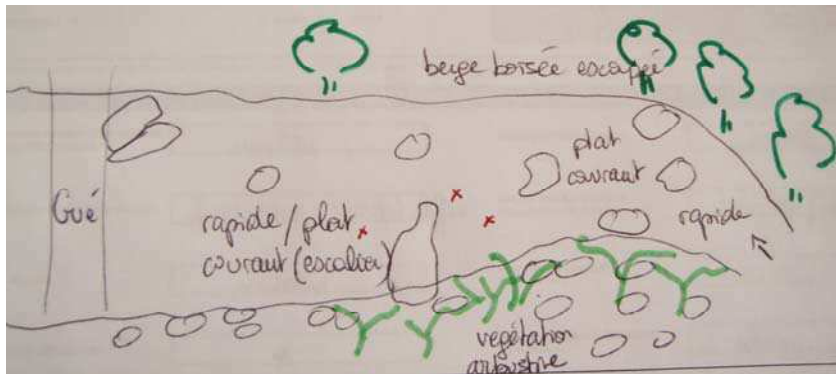 berge boisée escarpé
plat
courant
Gué
rapide / plat
courant (escalier)
rapide
végétation
arbustive